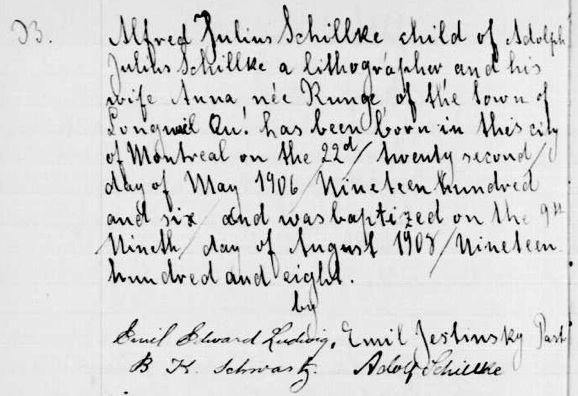 33.
Alfred Julius Schillke child of Adolph
Julius Schillke a lithographer and his
wife Anna, née Runge of the town of
Longueil Qu! has been born in this city
of Montreal on the 22d/ twenty second/
day of May 1906 /Nineteen hundred
and six and was baptized on the 9th
Nineth/ day of August 1908/Nineteen
hundred and eight.
by
Emil Edward Ludwig, Emil Jestinsky Past
B K. Schwartz. Adolf Schillke